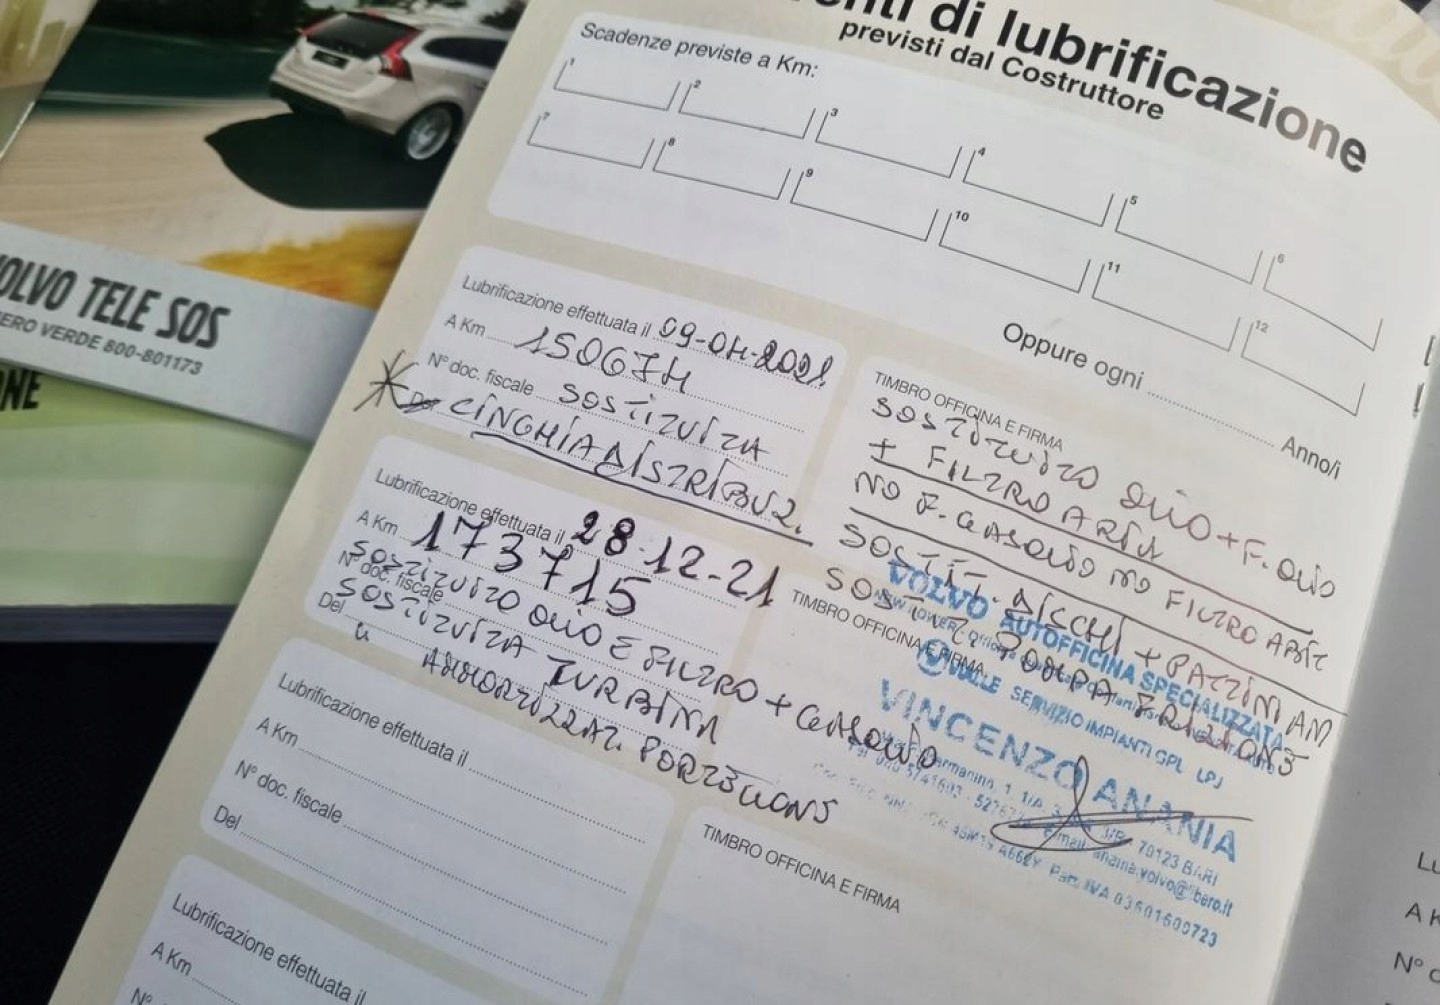 enti di lubrificazione
previsti dal Costruttore
Scadenze previste a Km:
1 2 3 4 5 6
7 8 9 10 11 12
Oppure ogni Anno/i
VOLVO TELE SOS
ERO VERDE 800-801173
NE
Lubrificazione effettuata il 09-04-2021
A Km 150674
N° doc. fiscale SOSTITUITA
CINGHIA DISTRIBUZ.
TIMBRO OFFICINA E FIRMA
SOSTITUITO OLIO + F. OLIO
+ FILTRO ARIA
NO F. GASOLIO NO FILTRO ABIT
SOSTIT. DISCHI + PATTINI AN
SOST. POMPA
Lubrificazione effettuata il 28-12-21
A Km 173715
N° doc. fiscale
SOSTITUITO OLIO E FILTRO + GASOLIO
Del
SOSTITUITA TURBINA
AMMORTIZZAT. PORTELLONE
TIMBRO OFFICINA E FIRMA
VOLVO AUTOFFICINA SPECIALIZZATA
SERVIZIO IMPIANTI GPL
VINCENZO ANANIA
70123 BARI
e-mail: anania.volvo@libero.it
Part. IVA 03601600723
Lubrificazione effettuata il
A Km
N° doc. fiscale
Del
TIMBRO OFFICINA E FIRMA
Lubrificazione effettuata il
A Km
N°
Lu
A K
N° d